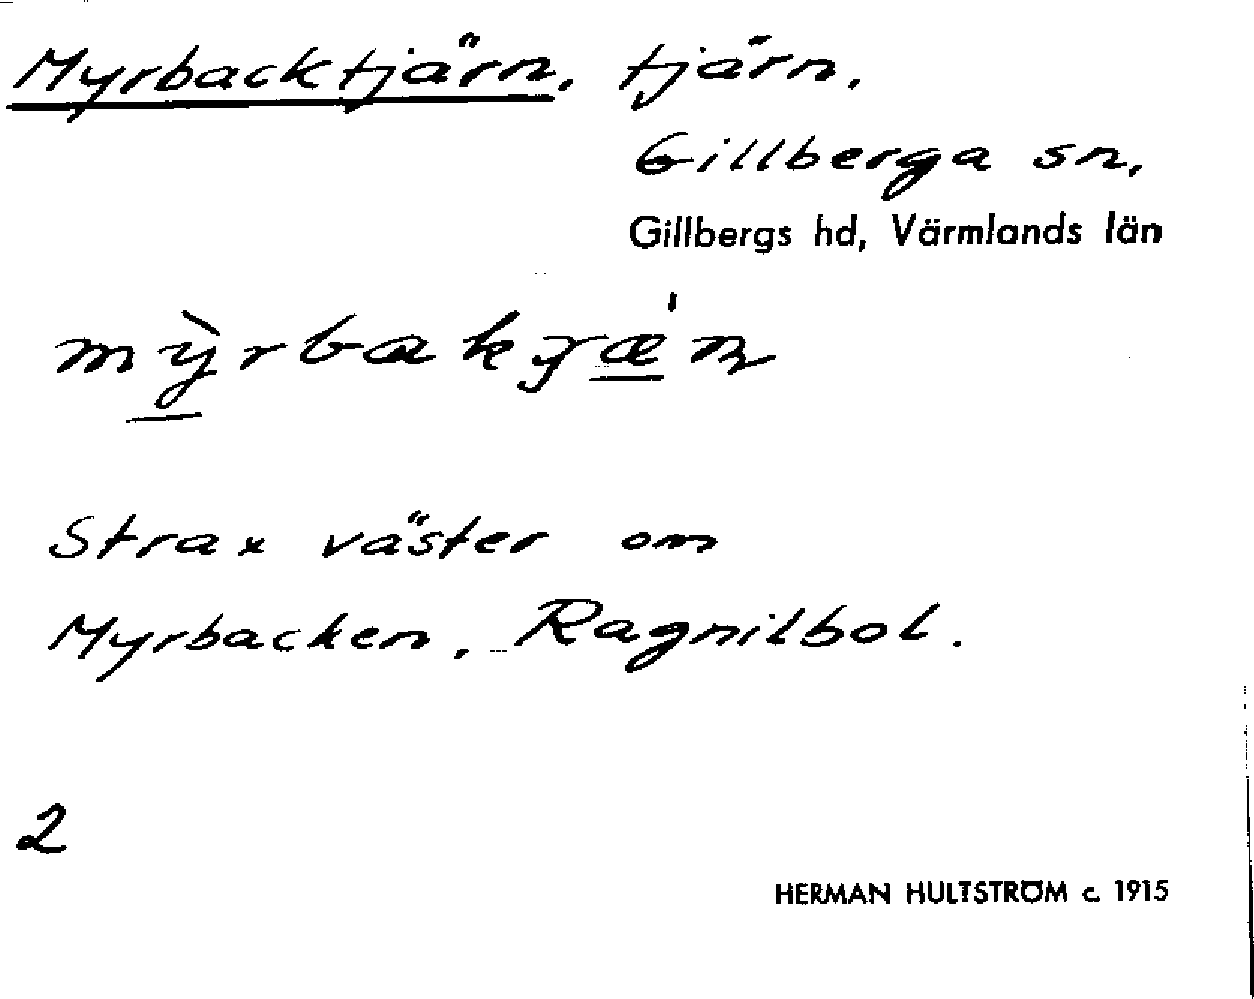 Myrbacktjärn, tjärn,
Gillberga sn,
Gillbergs hd, Värmlands län
Strax väster om
Myrbacken, Ragnilbol.
2
HERMAN HULTSTRÖM c. 1915